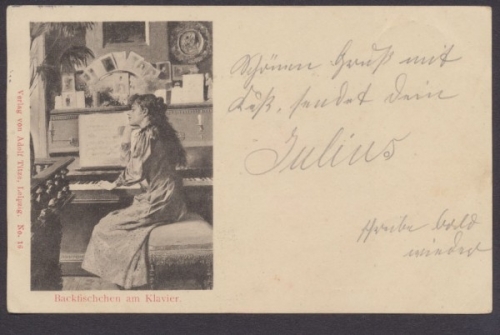 Verlag von Adolf Titze, Leipzig. No. 14
Backfischchen am Klavier.
Schönen Gruß mit
Kuß, sendet Dein
Julius
schreibe bald
wieder